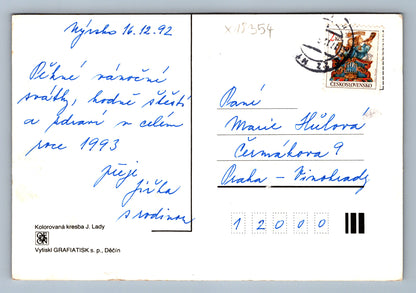 Nýrsko 16.12.92
Pěkné vánoční
svátky, hodně štěstí
a zdraví v celém
roce 1993
přeje
Jiřka
s rodinou
Kolorovaná kresba J. Lady
Vytiskl GRAFIATISK s. p., Děčín
ČESKOSLOVENSKO
Paní
Marie Hůlová
Čermákova 9
Praha - Vinohrady
12000